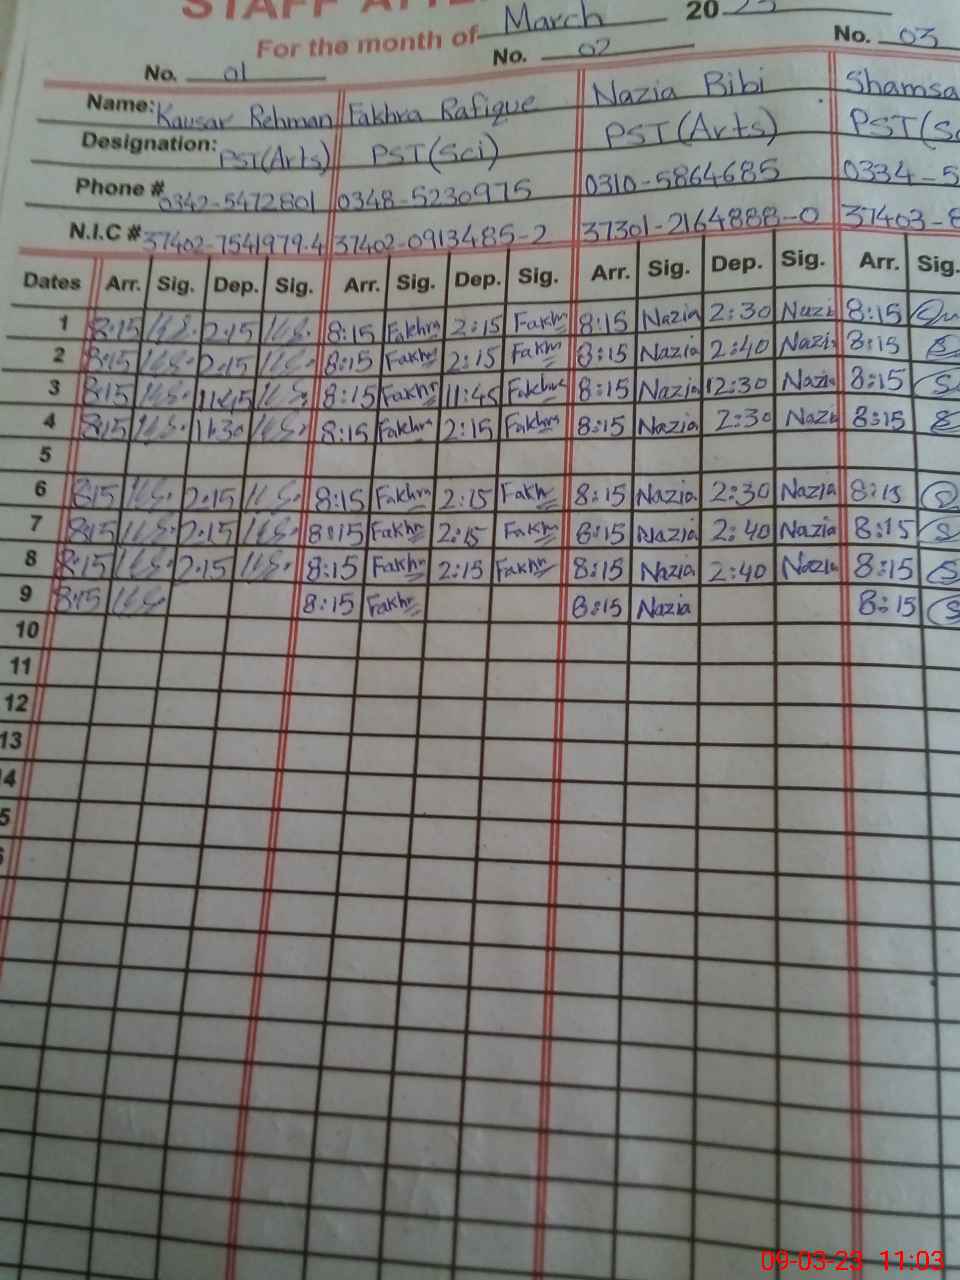 STAFF
For the month of March 20
No. 01 No. 02 No. 03
Name: Kausar Rehman Fakhra Rafique Nazia Bibi Shamsa
Designation: PST(Arts) PST(Sci) PST(Arts)
Phone # 0342-5472801 0348-5230975 0310-5864685 0334-5
N.I.C # 37402-7541979-4 37402-0913485-2 37301-2164888-0 37403-8
Dates Arr. Sig. Dep. Sig. Arr. Sig. Dep. Sig. Arr. Sig. Dep. Sig. Arr. Sig.
1 8:15 2:15 8:15 Fakhra 2:15 Fakhr 8:15 Nazia 2:30 Nazi 8:15
2 8:15 2:15 8:15 Fakhr 2:15 Fakhr 8:15 Nazia 2:40 Nazi 8:15
3 8:15 11:45 8:15 Fakhr 11:45 Fakhra 8:15 Nazia 12:30 Nazia 8:15
4 8:15 11:30 8:15 Fakhra 2:15 Fakhra 8:15 Nazia 2:30 Nazia 8:15
5
6 8:15 2:15 8:15 Fakhra 2:15 Fakhr 8:15 Nazia 2:30 Nazia 8:15
7 8:15 2:15 8:15 Fakhr 2:15 Fakhr 8:15 Nazia 2:40 Nazia 8:15
8 8:15 2:15 8:15 Fakhr 2:15 Fakhr 8:15 Nazia 2:40 Nazia 8:15
9 8:15 8:15 Fakhr 8:15 Nazia 8:15
10
11
12
13
4
5
09-03-23 11:03